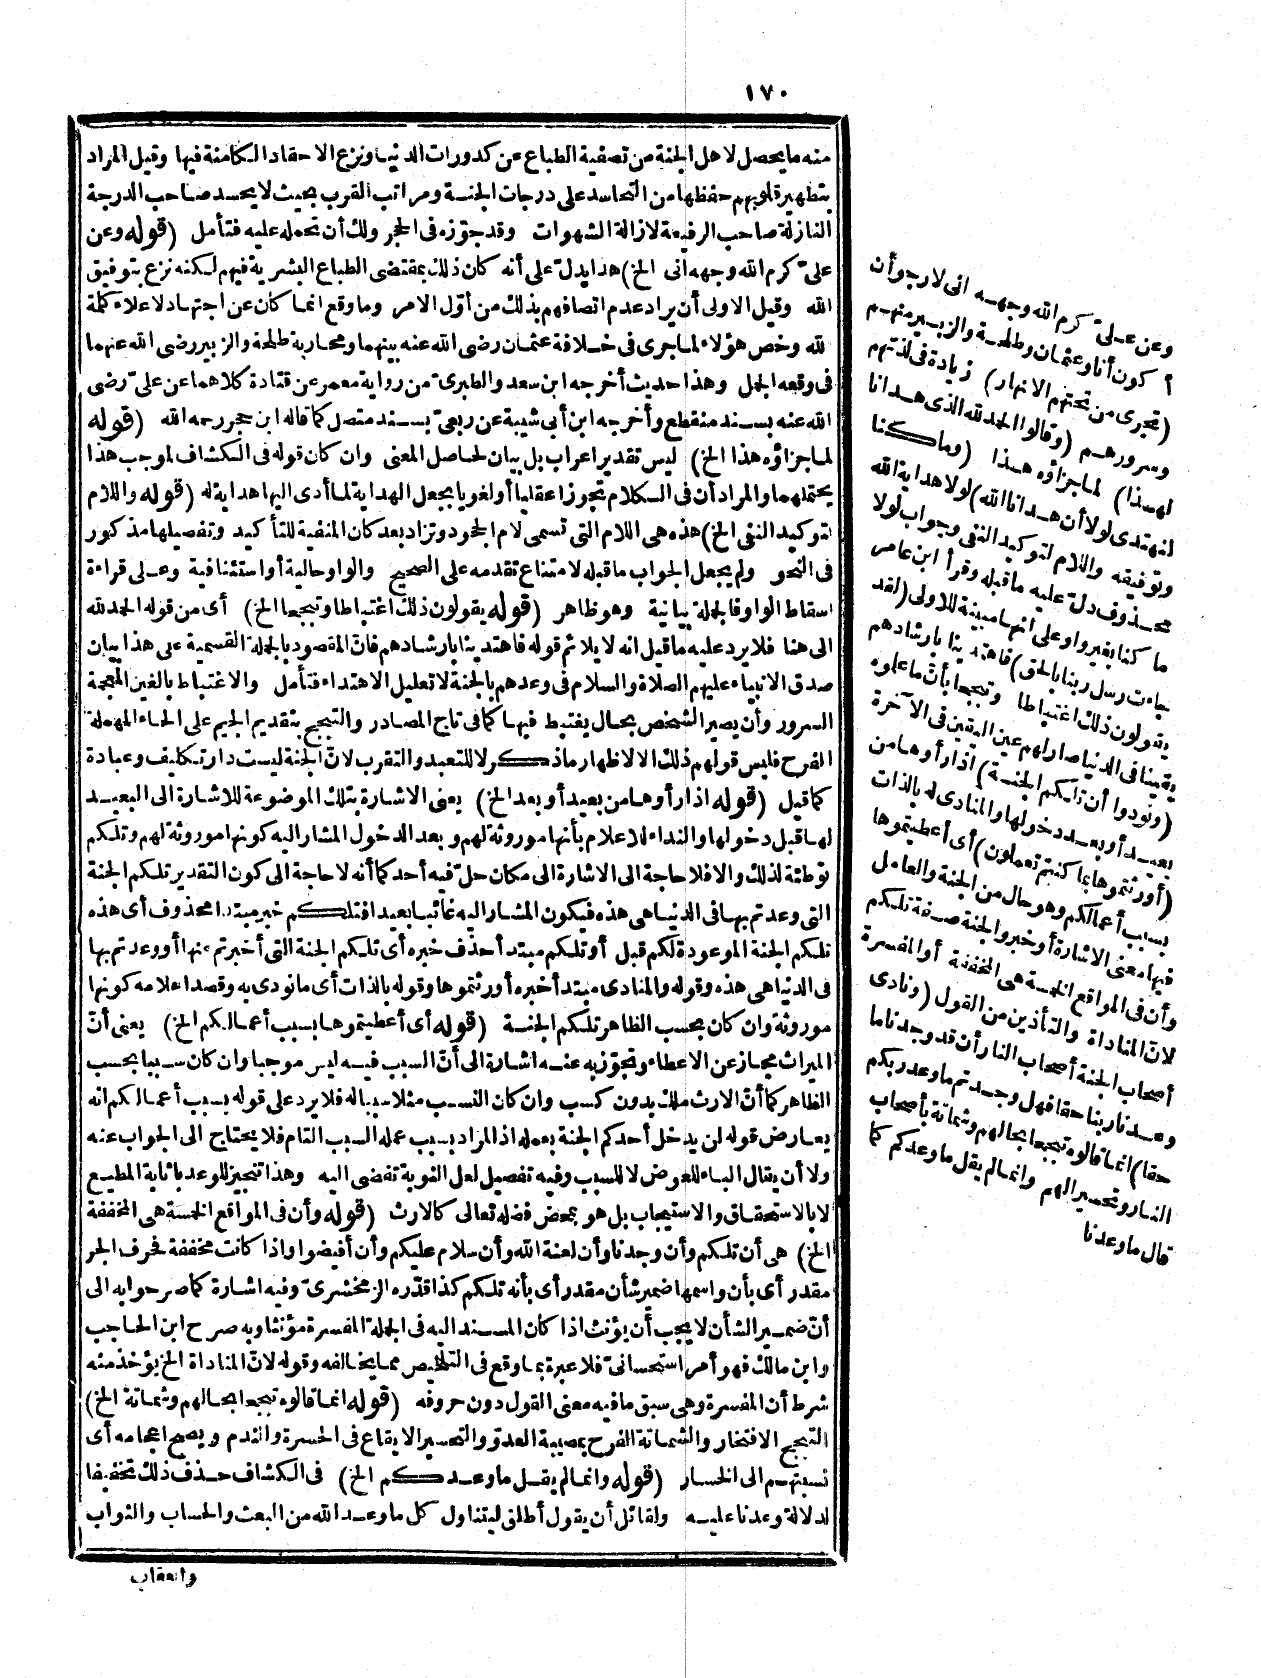 ١٧٠
منه ما يحصل لاهل الجنة من تصفية الطباع عن كدورات الدنيا ونزع الاحقاد الكامنة فيها وقيل المراد
بتطهير قلوبهم حفظها من التحاسد على درجات الجنة ومراتب القرب بحيث لا يحسد صاحب الدرجة
النازلة صاحب الرفيعة لازالة الشهوات وقد جوّزه فى الحجر ولك أن تحمله عليه فتأمل (قوله وعن
علىّ كرم الله وجهه انى الخ) هذا يدل على أنه كان ذلك بمقتضى الطباع البشرية فيهم لكنه نزع بتوفيق
الله وقيل الاولى أن يراد عدم اتصافهم بذلك من أوّل الامر وما وقع انما كان عن اجتهاد لاعلاء كلمة
لله وخص هؤلاء لما جرى فى خلافة عثمان رضى الله عنه بينهما ومحاربة طلحة والزبير رضى الله عنهما
فى وقعه الجمل وهذا حديث أخرجه ابن سعد والطبرى من رواية معمر عن قتادة كلاهما عن علىّ رضى
الله عنه بسند منقطع وأخرجه ابن أبى شيبة عن ربعىّ بسند متصل كما قاله ابن حجر رحمه الله (قوله
لما جزاؤه هذا الخ) ليس تقدير اعراب بل بيان لحاصل المعنى وان كان قوله فى الكشاف لموجب هذا
يحتملهما والمراد أن فى الكلام تجوزا عقليا أو لغويا بجعل الهداية لما أدى اليها هداية له (قوله واللام
لتوكيد النفى الخ) هذه هى اللام التى تسمى لام الجحود وتزاد بعد كان المنفية للتأكيد وتفصيلها مذكور
فى النحو ولم يجعل الجواب ما قبله لامتناع تقدمه على الصحيح والواو حالية أو استئنافية وعلى قراءة
اسقاط الواو فالجملة بيانية وهو ظاهر (قوله يقولون ذلك اغتباطا وتبجحا الخ) أى من قوله الحمد لله
الى هنا فلا يرد عليه ما قيل انه لا يلائم قوله فاهتدينا بارشادهم فانّ المقصود بالجملة القسمية على هذا بيان
صدق الانبياء عليهم الصلاة والسلام فى وعدهم بالجنة لا تعليل الاهتداء فتأمل والاغتباط بالغين المعجمة
السرور وأن يصير الشخص بحال يغتبط فيها كما فى تاج المصادر والتبجح بتقديم الجيم على الحاء المهملة
الفرح فليس قولهم ذلك الا لاظهار ما ذكر لا للتعبد والتقرب لانّ الجنة ليست دار تكليف وعبادة
كما قيل (قوله اذا رأوها من بعيد أو بعد الخ) يعنى الاشارة بتلك الموضوعة للاشارة الى البعيد
لها قبل دخولها والنداء للاعلام بأنها موروثة لهم وبعد الدخول المشار اليه كونها موروثة لهم وتلكم
توطئة لذلك والا فلا حاجة الى الاشارة الى مكان حلّ فيه أحد كما أنه لا حاجة الى كون التقدير تلكم الجنة
التى وعدتم بها فى الدنيا هى هذه فيكون المشار اليه غائبا بعيدا فتلكم خبر مبتدا محذوف أى هذه
تلكم الجنة الموعودة لكم قبل أو تلكم مبتدأ حذف خبره أى تلكم الجنة التى أخبرتم عنها أو وعدتم بها
فى الدنيا هى هذه وقوله والمنادى مبتدا خبره أورثتموها وقوله بالذات أى ما نودى به وقصد اعلامه كونها
موروثة وان كان بحسب الظاهر تلكم الجنة (قوله أى أعطيتموها بسبب أعمالكم الخ) يعنى أنّ
الميراث مجاز عن الاعطاء وتجوّز به عنه اشارة الى أنّ السبب فيه ليس موجبا وان كان سببا بحسب
الظاهر كما أنّ الارث ملك بدون كسب وان كان النسب مثلا سبباله فلا يرد على قوله بسبب أعمالكم انه
يعارض قوله لن يدخل أحدكم الجنة بعمله اذ المراد بسبب عمله السبب التام فلا يحتاج الى الجواب عنه
ولا أن يقال الباء للعوض لا للسبب وفيه تفصيل لعل النوبة تفضى اليه وهذا تنجيز للوعد باثابة المطيع
لا بالاستحقاق والاستيجاب بل هو بمحض فضله تعالى كالارث (قوله وأن فى المواقع الخمسة هى المخففة
الخ) هى أن تلكم وأن وجدنا وأن لعنة الله وأن سلام عليكم وأن أفيضوا واذا كانت مخففة فحرف الجر
مقدر أى بأن واسمها ضمير شأن مقدر أى بأنه تلكم كذا قدّره الزمخشرىّ وفيه اشارة كما صرحوا به الى
أنّ ضمير الشأن لا يجب أن يؤنث اذا كان المسند اليه فى الجملة المفسرة مؤنثا وبه صرح ابن الحاجب
وابن مالك فهو أمر استحسانىّ فلا عبرة بما وقع فى التلخيص مما يخالفه وقوله لانّ المناداة الخ يؤخذ منه
شرط أن المفسرة وهى سبق ما فيه معنى القول دون حروفه (قوله انما قالوه تبجحا بحالهم وشماتة الخ)
التبجح الافتخار والشماتة الفرح بمصيبة العدوّ والتحسير الايقاع فى الحسرة والندم ويصح اعجامه أى
نسبتهم الى الخسار (قوله وانما لم يقل ما وعدكم الخ) فى الكشاف حذف ذلك تخفيفا
لدلالة وعدنا عليه ولقائل أن يقول أطلق ليتناول كل ما وعد الله من البعث والحساب والثواب
والعقاب
وعن علىّ كرم الله وجهه انى لارجو أن
أكون أنا وعثمان وطلحة والزبير منهم
(تجرى من تحتهم الانهار) زيادة فى لذتهم
وسرورهم (وقالوا الحمد لله الذى هدانا
لهذا) لما جزاؤه هذا (وما كنا
لنهتدى لولا أن هدانا الله) لولا هداية الله
وتوفيقه واللام لتوكيد النفى وجواب لولا
محذوف دلّ عليه ما قبله وقرأ ابن عامر
ما كنا بغير واو على انها مبينة للاولى (لقد
جاءت رسل ربنا بالحق) فاهتدينا بارشادهم
يقولون ذلك اغتباطا وتبجحا بأنّ ما علموه
يقينا فى الدنيا صار لهم عين اليقين فى الآخرة
(ونودوا أن تلكم الجنة) اذا رأوها من
بعيد أو بعد دخولها والمنادى له بالذات
(أورثتموها بما كنتم تعملون) أى أعطيتموها
بسبب أعمالكم وهو حال من الجنة والعامل
فيها معنى الاشارة أو خبر والجنة صفة تلكم
وأن فى المواقع الخمسة هى المخففة أو المفسرة
لانّ المناداة والتأذين من القول (ونادى
أصحاب الجنة أصحاب النار أن قد وجدنا ما
وعدنا ربنا حقا فهل وجدتم ما وعد ربكم
حقا) انما قالوه تبجحا بحالهم وشماتة بأصحاب
النار وتحسيرا لهم وانما لم يقل ما وعدكم كما
قال ما وعدنا